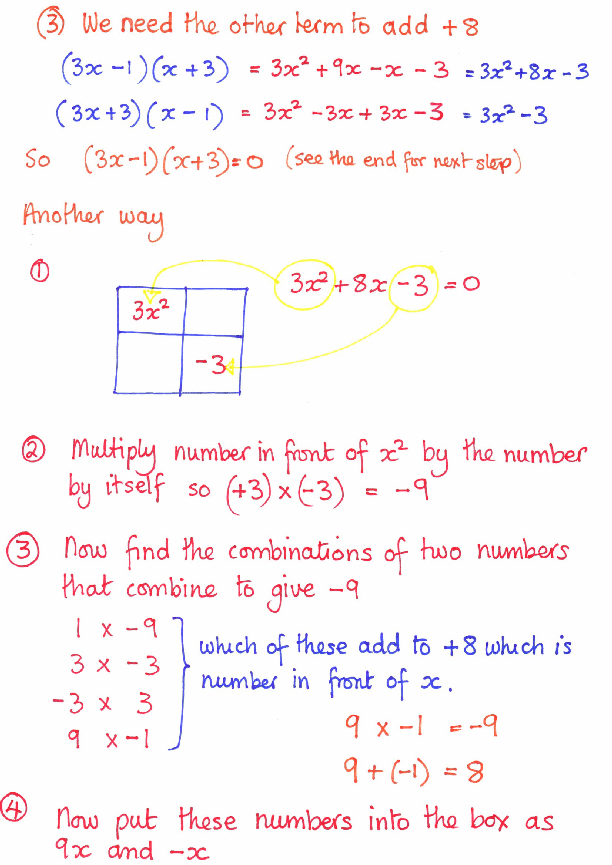 ③ We need the other term to add +8
(3x -1)(x +3) = 3x² + 9x - x - 3 = 3x² + 8x - 3
(3x+3)(x - 1) = 3x² - 3x + 3x - 3 = 3x² - 3
So (3x-1)(x+3)=0 (see the end for next step)
Another way
① 3x² + 8x - 3 = 0
3x²
-3
② Multiply number in front of x² by the number
by itself so (+3) x (-3) = -9
③ Now find the combinations of two numbers
that combine to give -9
1 x -9
3 x -3
-3 x 3
9 x -1
which of these add to +8 which is
number in front of x.
9 x -1 = -9
9 + (-1) = 8
④ Now put these numbers into the box as
9x and -x